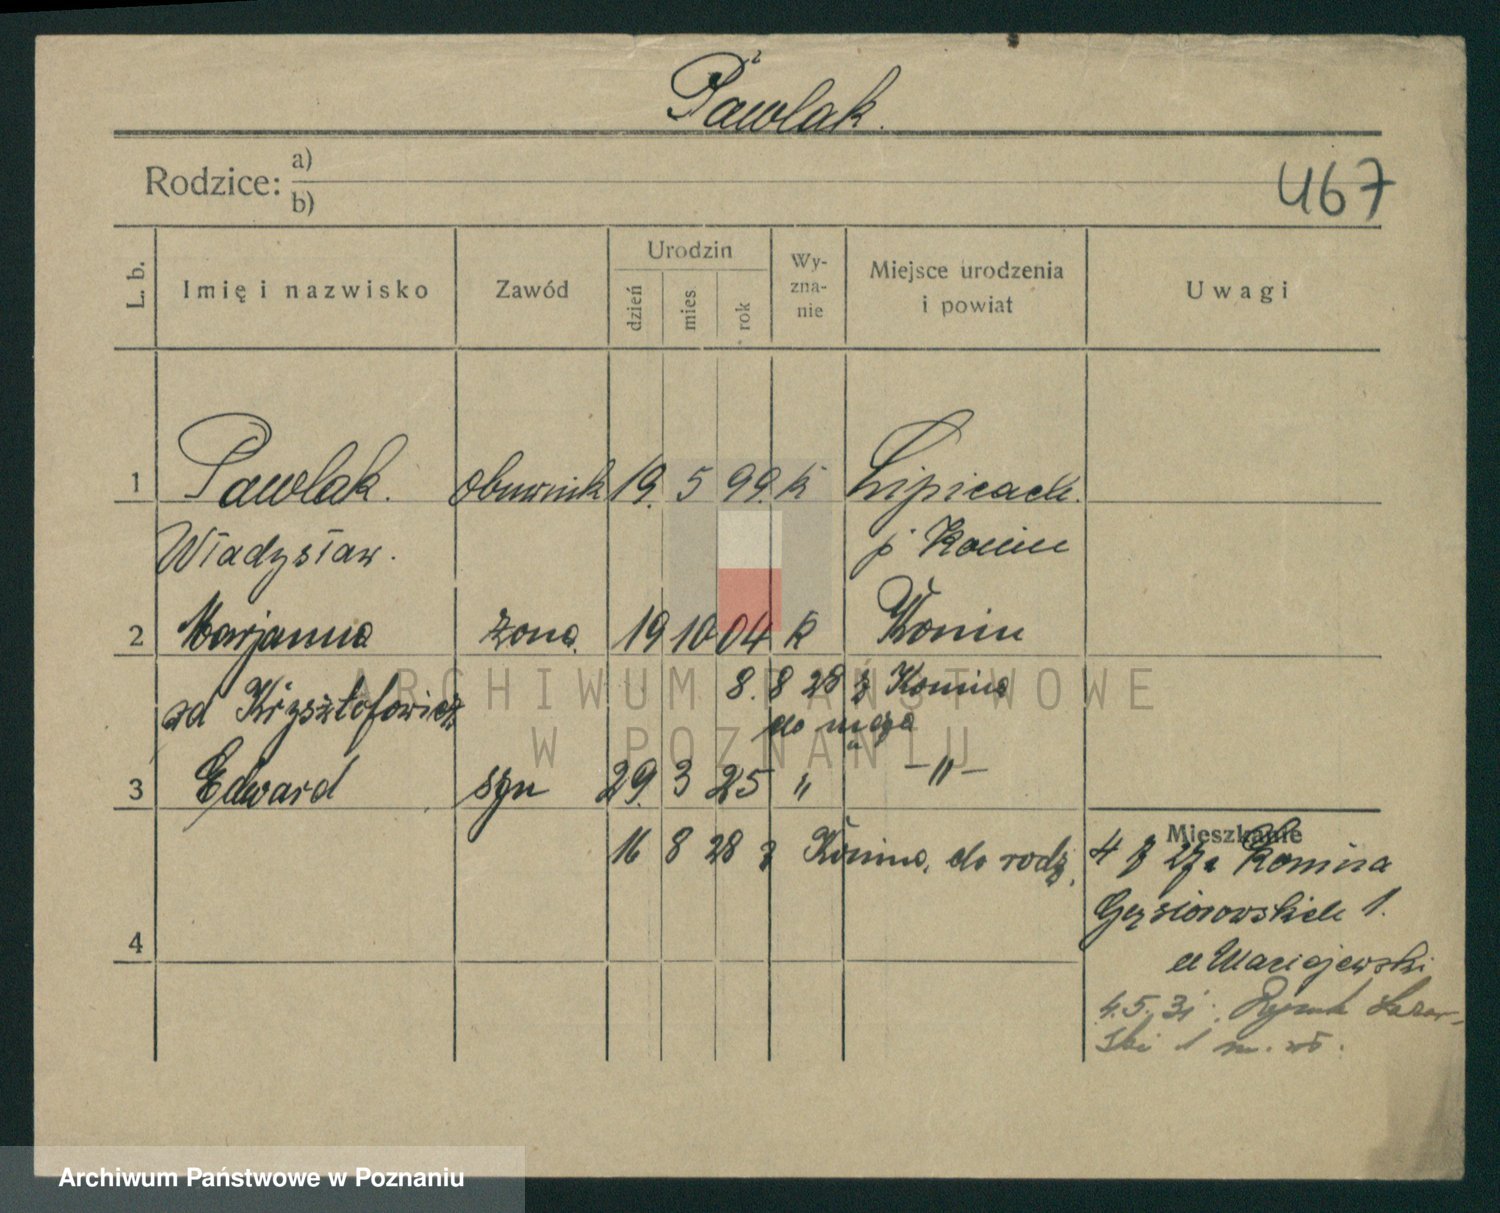 Pawlak.
Rodzice: a)
b)
467
L. b. Imię i nazwisko Zawód Urodzin dzień mies rok Wy-zna-nie Miejsce urodzenia i powiat Uwagi
1 Pawlak. obuwnik 19. 5 99. k Lipicach.
Władysław. p Konin
2 Marjanna żona 19 10 04 k Konin
8. 8 28 z Konina
zd Krzysztofowicz do męża
3 Edward syn 29. 3 25 " -"-
Mieszkanie
16 8 28 z Konina, do rodz. 4 27 z Konina
Gąsiorowskich 1.
4
u Maciejewski
4.5.31. Rynek Łazar-
ski 1 m.
ARCHIWUM PAŃSTWOWE
W POZNANIU
Archiwum Państwowe w Poznaniu